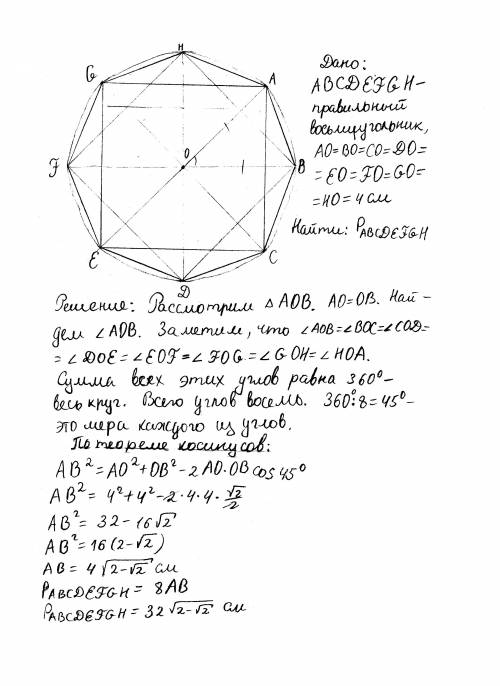 H
G
A
F
O
B
E
C
D
Дано:
ABCDEFGH-
правильный
восьмиугольник,
AO=BO=CO=DO=
=EO=FO=GO=
=HO=4 см
Найти: PABCDEFGH
Решение: Рассмотрим △AOB. AO=OB. Най-
дем ∠AOB. Заметим, что ∠AOB=∠BOC=∠COD=
=∠DOE=∠EOF=∠FOG=∠GOH=∠HOA.
Сумма всех этих углов равна 360°-
весь круг. Всего углов восемь. 360°:8=45°-
это мера каждого из углов.
По теореме косинусов:
AB²=AO²+OB²-2AO·OB cos45°
AB²=4²+4²-2·4·4·√2/2
AB²=32-16√2
AB²=16(2-√2)
AB=4√(2-√2) см
PABCDEFGH=8AB
PABCDEFGH=32√(2-√2) см